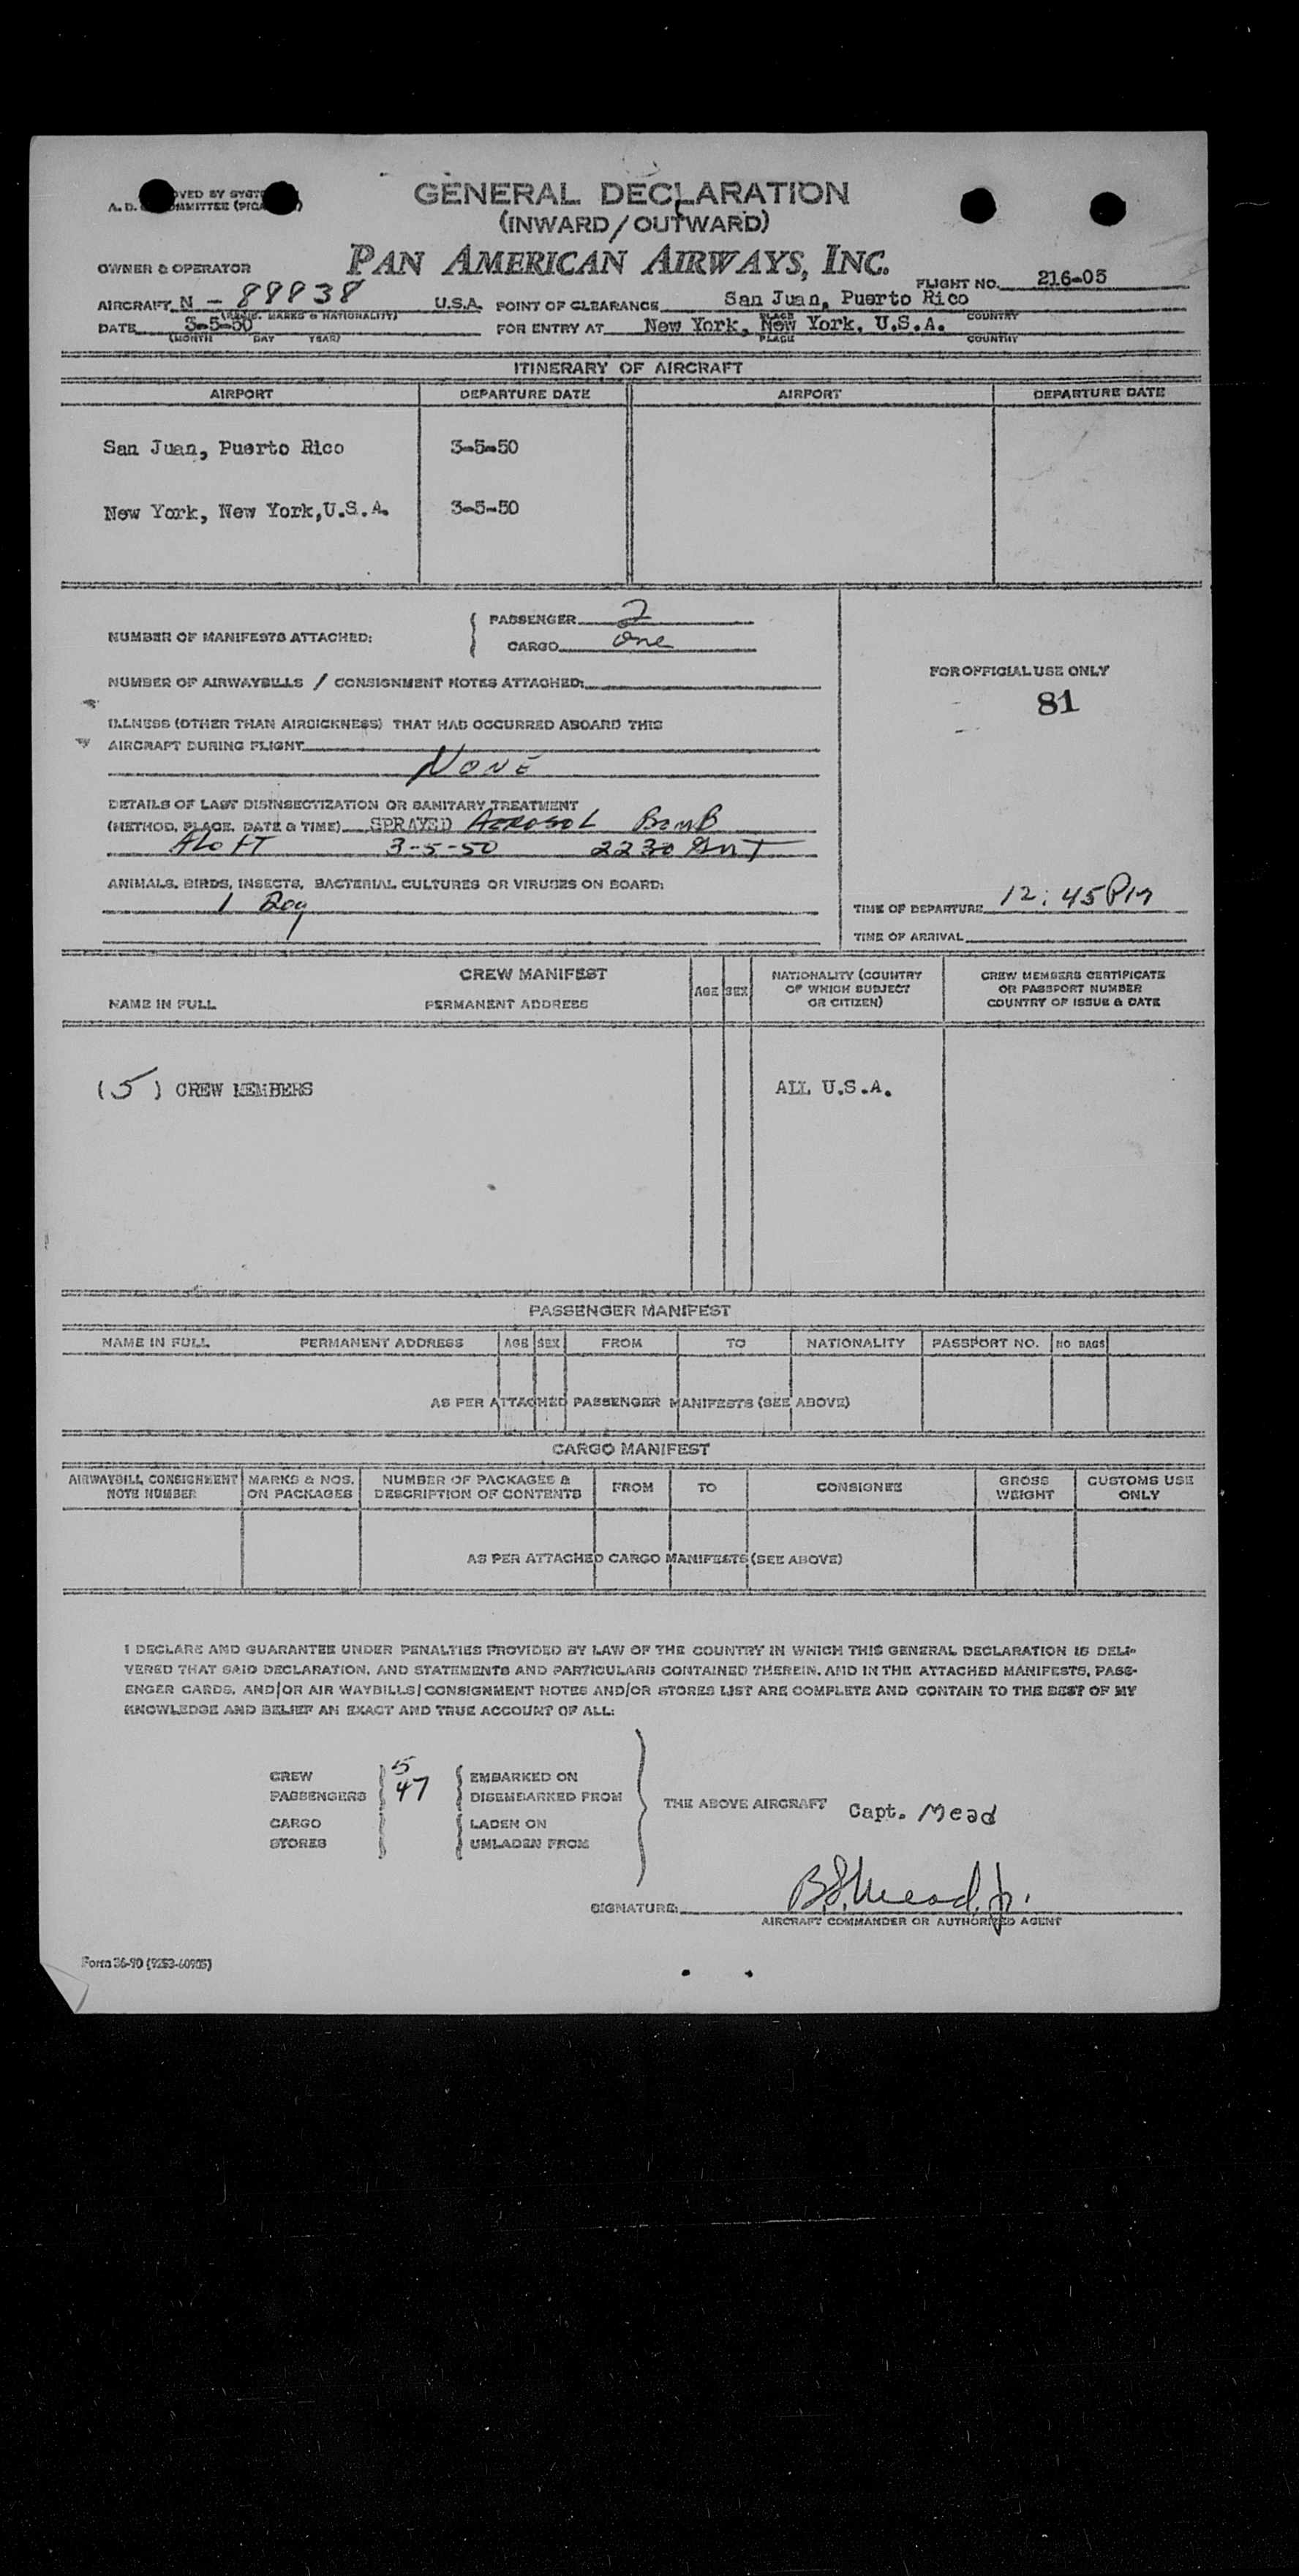 GENERAL DECLARATION
(INWARD/OUTWARD)
PAN AMERICAN AIRWAYS, INC.
OWNER & OPERATOR
FLIGHT NO. 216-05
AIRCRAFT N - 88838 U.S.A. POINT OF CLEARANCE San Juan, Puerto Rico
MARKS & NATIONALITY) PLACE COUNTRY
DATE 3-5-50 FOR ENTRY AT New York, New York, U.S.A.
(MONTH DAY YEAR) PLACE COUNTRY
ITINERARY OF AIRCRAFT
AIRPORT DEPARTURE DATE AIRPORT DEPARTURE DATE
San Juan, Puerto Rico 3-5-50
New York, New York,U.S.A. 3-5-50
NUMBER OF MANIFESTS ATTACHED: PASSENGER 2
CARGO One
NUMBER OF AIRWAYBILLS / CONSIGNMENT NOTES ATTACHED:
FOR OFFICIAL USE ONLY
81
ILLNESS (OTHER THAN AIRSICKNESS) THAT HAD OCCURRED ABOARD THIS
AIRCRAFT DURING FLIGHT
NONE
DETAILS OF LAST DISINSECTIZATION OR SANITARY TREATMENT
(METHOD, PLACE, DATE & TIME) SPRAYED AEROSOL BOMB
Aloft 3-5-50 2230 GMT
ANIMALS, BIRDS, INSECTS, BACTERIAL CULTURES OR VIRUSES ON BOARD:
1 Dog
TIME OF DEPARTURE 12:45 PM
TIME OF ARRIVAL
CREW MANIFEST
NAME IN FULL PERMANENT ADDRESS AGE SEX NATIONALITY (COUNTRY OF WHICH SUBJECT OR CITIZEN) CREW MEMBERS CERTIFICATE OR PASSPORT NUMBER COUNTRY OF ISSUE & DATE
(5) CREW MEMBERS ALL U.S.A.
PASSENGER MANIFEST
NAME IN FULL PERMANENT ADDRESS AGE SEX FROM TO NATIONALITY PASSPORT NO. NO BAGS
AS PER ATTACHED PASSENGER MANIFESTS (SEE ABOVE)
CARGO MANIFEST
AIRWAYBILL CONSIGNMENT NOTE NUMBER MARKS & NOS. ON PACKAGES NUMBER OF PACKAGES & DESCRIPTION OF CONTENTS FROM TO CONSIGNEE GROSS WEIGHT CUSTOMS USE ONLY
AS PER ATTACHED CARGO MANIFESTS (SEE ABOVE)
I DECLARE AND GUARANTEE UNDER PENALTIES PROVIDED BY LAW OF THE COUNTRY IN WHICH THIS GENERAL DECLARATION IS DELI-
VERED THAT SAID DECLARATION, AND STATEMENTS AND PARTICULARS CONTAINED THEREIN, AND IN THE ATTACHED MANIFESTS, PASS-
ENGER CARDS, AND/OR AIR WAYBILLS/CONSIGNMENT NOTES AND/OR STORES LIST ARE COMPLETE AND CONTAIN TO THE BEST OF MY
KNOWLEDGE AND BELIEF AN EXACT AND TRUE ACCOUNT OF ALL:
CREW 5 EMBARKED ON
PASSENGERS 47 DISEMBARKED FROM
THE ABOVE AIRCRAFT Capt. Mead
CARGO LADEN ON
STORES UNLADEN FROM
SIGNATURE: B.S. Mead, Jr.
AIRCRAFT COMMANDER OR AUTHORIZED AGENT
Form 36-90 (9253-60905)